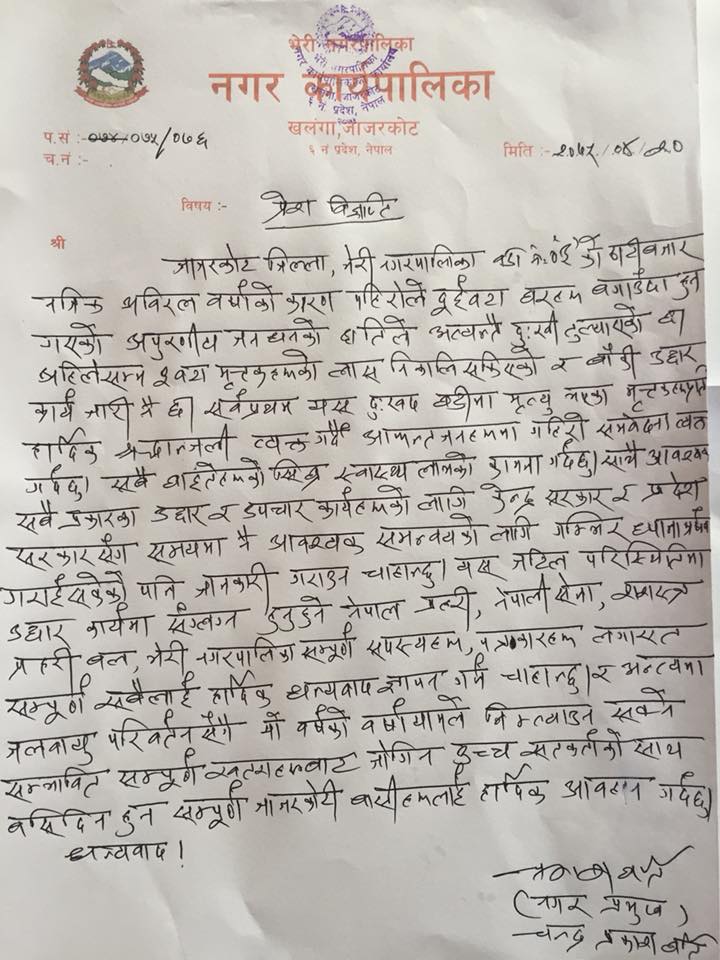 भेरी नगरपालिका
नगर कार्यपालिका
भेरी नगरपालिका
नगर कार्यपालिकाको कार्यालय
खलंगा, जाजरकोट
६ नं प्रदेश, नेपाल
खलंगा, जाजरकोट
६ नं प्रदेश, नेपाल
प.सं :- ०७४-०७५/०७६
च.नं :-
मिति :- २०७५/०४/२०
विषय :- प्रेस विज्ञप्ति
श्री
जाजरकोट जिल्ला, भेरी नगरपालिका वडा नं. को
नजिक अविरल वर्षाको कारण पहिरोले दुईवटा घरहरू बगाउँदा हुन
गएको अपुरणीय जनधनको क्षतिले अत्यन्तै दुःखी तुल्याएको छ।
अहिलेसम्म मृतकहरूको लास निकालिसकिएको र बाँकी उद्दार
कार्य जारी नै छ। सर्वप्रथम यस दुःखद घडीमा मृत्यु भएका मृतकहरूप्रति
हार्दिक श्रद्धान्जली व्यक्त गर्दै आफन्तजनहरूमा गहिरो समवेदना व्यक्त
गर्दछु। सबै घाइतेहरूको शिघ्र स्वास्थ्य लाभको कामना गर्दछु। साथै आवश्यक
सबै प्रकारका उद्दार र उपचार कार्यहरूको लागि केन्द्र सरकार र प्रदेश
सरकार सँग समयमा नै आवश्यक समन्वयको लागि गम्भिर ध्यानाकर्षण
गराईसकेको पनि जानकारी गराउन चाहान्छु। यस जटिल परिस्थितिमा
उद्दार कार्यमा संलग्न हुनुहुने नेपाल प्रहरी, नेपाली सेना, सशस्त्र
प्रहरी बल, भेरी नगरपालिका सम्पूर्ण सदस्यहरू, पत्रकारहरू लगायत
सम्पूर्ण सबैलाई हार्दिक धन्यवाद ज्ञापन गर्न चाहान्छु। र अन्त्यमा
जलवायु परिवर्तन सँगै यो वर्षको वर्षायामले निम्त्याउन सक्ने
सम्भावित सम्पूर्ण खतराहरूबाट जोगिन उच्च सतर्कताको साथ
बसिदिन हुन सम्पूर्ण जाजरकोटी बासीहरूलाई हार्दिक आवहान गर्दछु।
धन्यवाद !
(नगर प्रमुख)
चन्द्र प्रकाश घर्ती